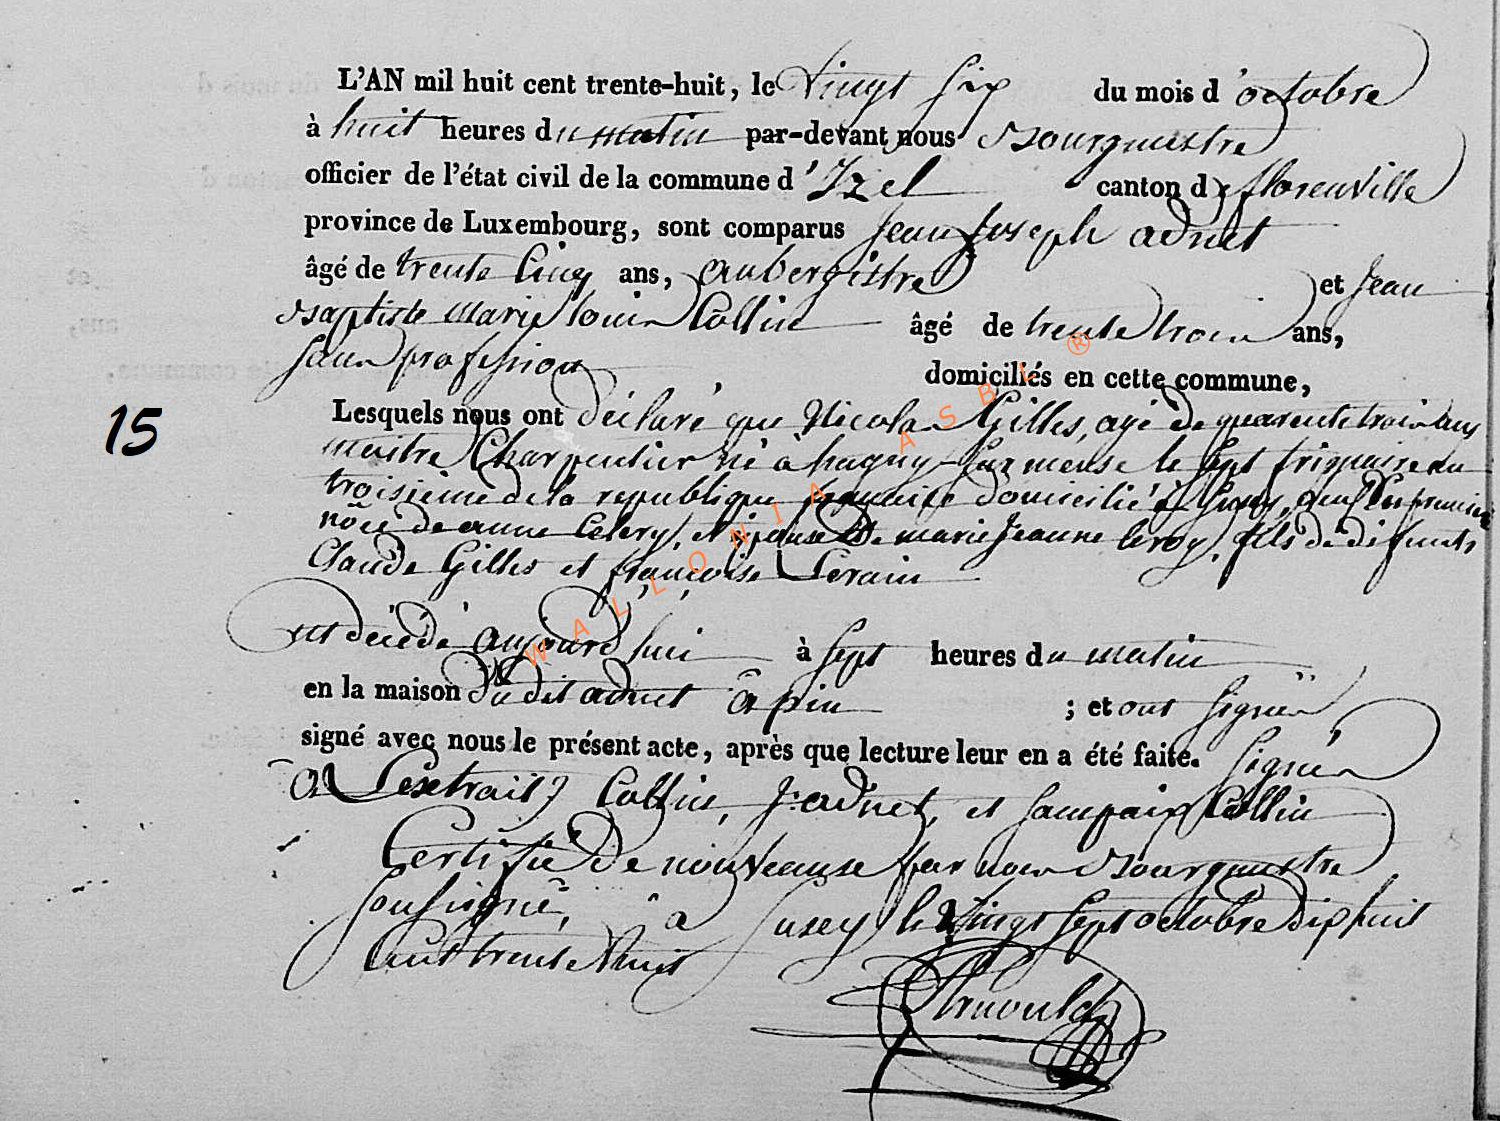 L'AN mil huit cent trente-huit, le vingt six du mois d'octobre
à huit heures du matin par-devant nous Bourgmestre
officier de l'état civil de la commune d'Izel canton de florenville
province de Luxembourg, sont comparus Jean Joseph adnet
âgé de trente cinq ans, aubergistre et Jean
Baptiste marie louis Collin âgé de trente trois ans,
sans profession domiciliés en cette commune,
15
Lesquels nous ont déclaré que Nicolas Gilles, agé de quarente trois ans
maitre Charpentier né à hagny sur meuse le sept frimaire an
troisième de la republique française domicilié à Susey, veuf en premier
nôce de anne Celery, et epouse de marie Jeanne leroy, fils de defunts
Claude Gilles et françoise Lerain
est décédé aujourd'hui à sept heures du matin
en la maison du dit adnet à pin ; et ont signés
signé avec nous le présent acte, après que lecture leur en a été faite. Signés
à Lextrait) Collin, J. adnet, et Collin
Certifié de nouveause par nous Bourgmestre
soussigné, à Susey le vingt sept octobre dix huit
Cent trente huit
Arnould
WALLONIA ASBL ®